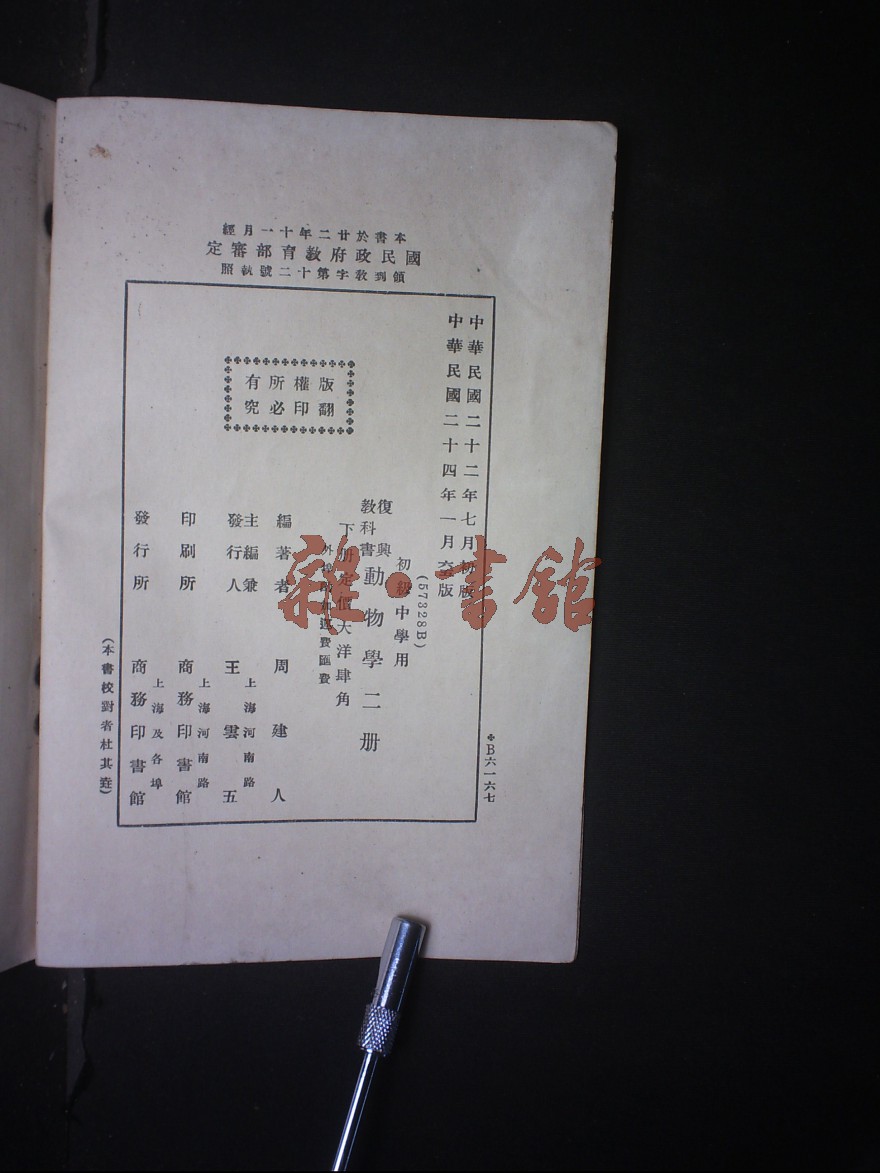 本書於廿二年十一月經
國民政府教育部審定
領到教字第十二號執照
中華民國二十二年七月初版
中華民國二十四年一月 版
(57328B)
初級中學用
復興教科書 動物學二册
下册定價大洋肆角
外埠 加運費匯費
版權所有
翻印必究
編著者 周建人
主編兼發行人 王雲五
上海河南路
印刷所 商務印書館
上海河南路
發行所 商務印書館
上海及各埠
(本書校對者杜其堡)
B六一六七
雜·書館